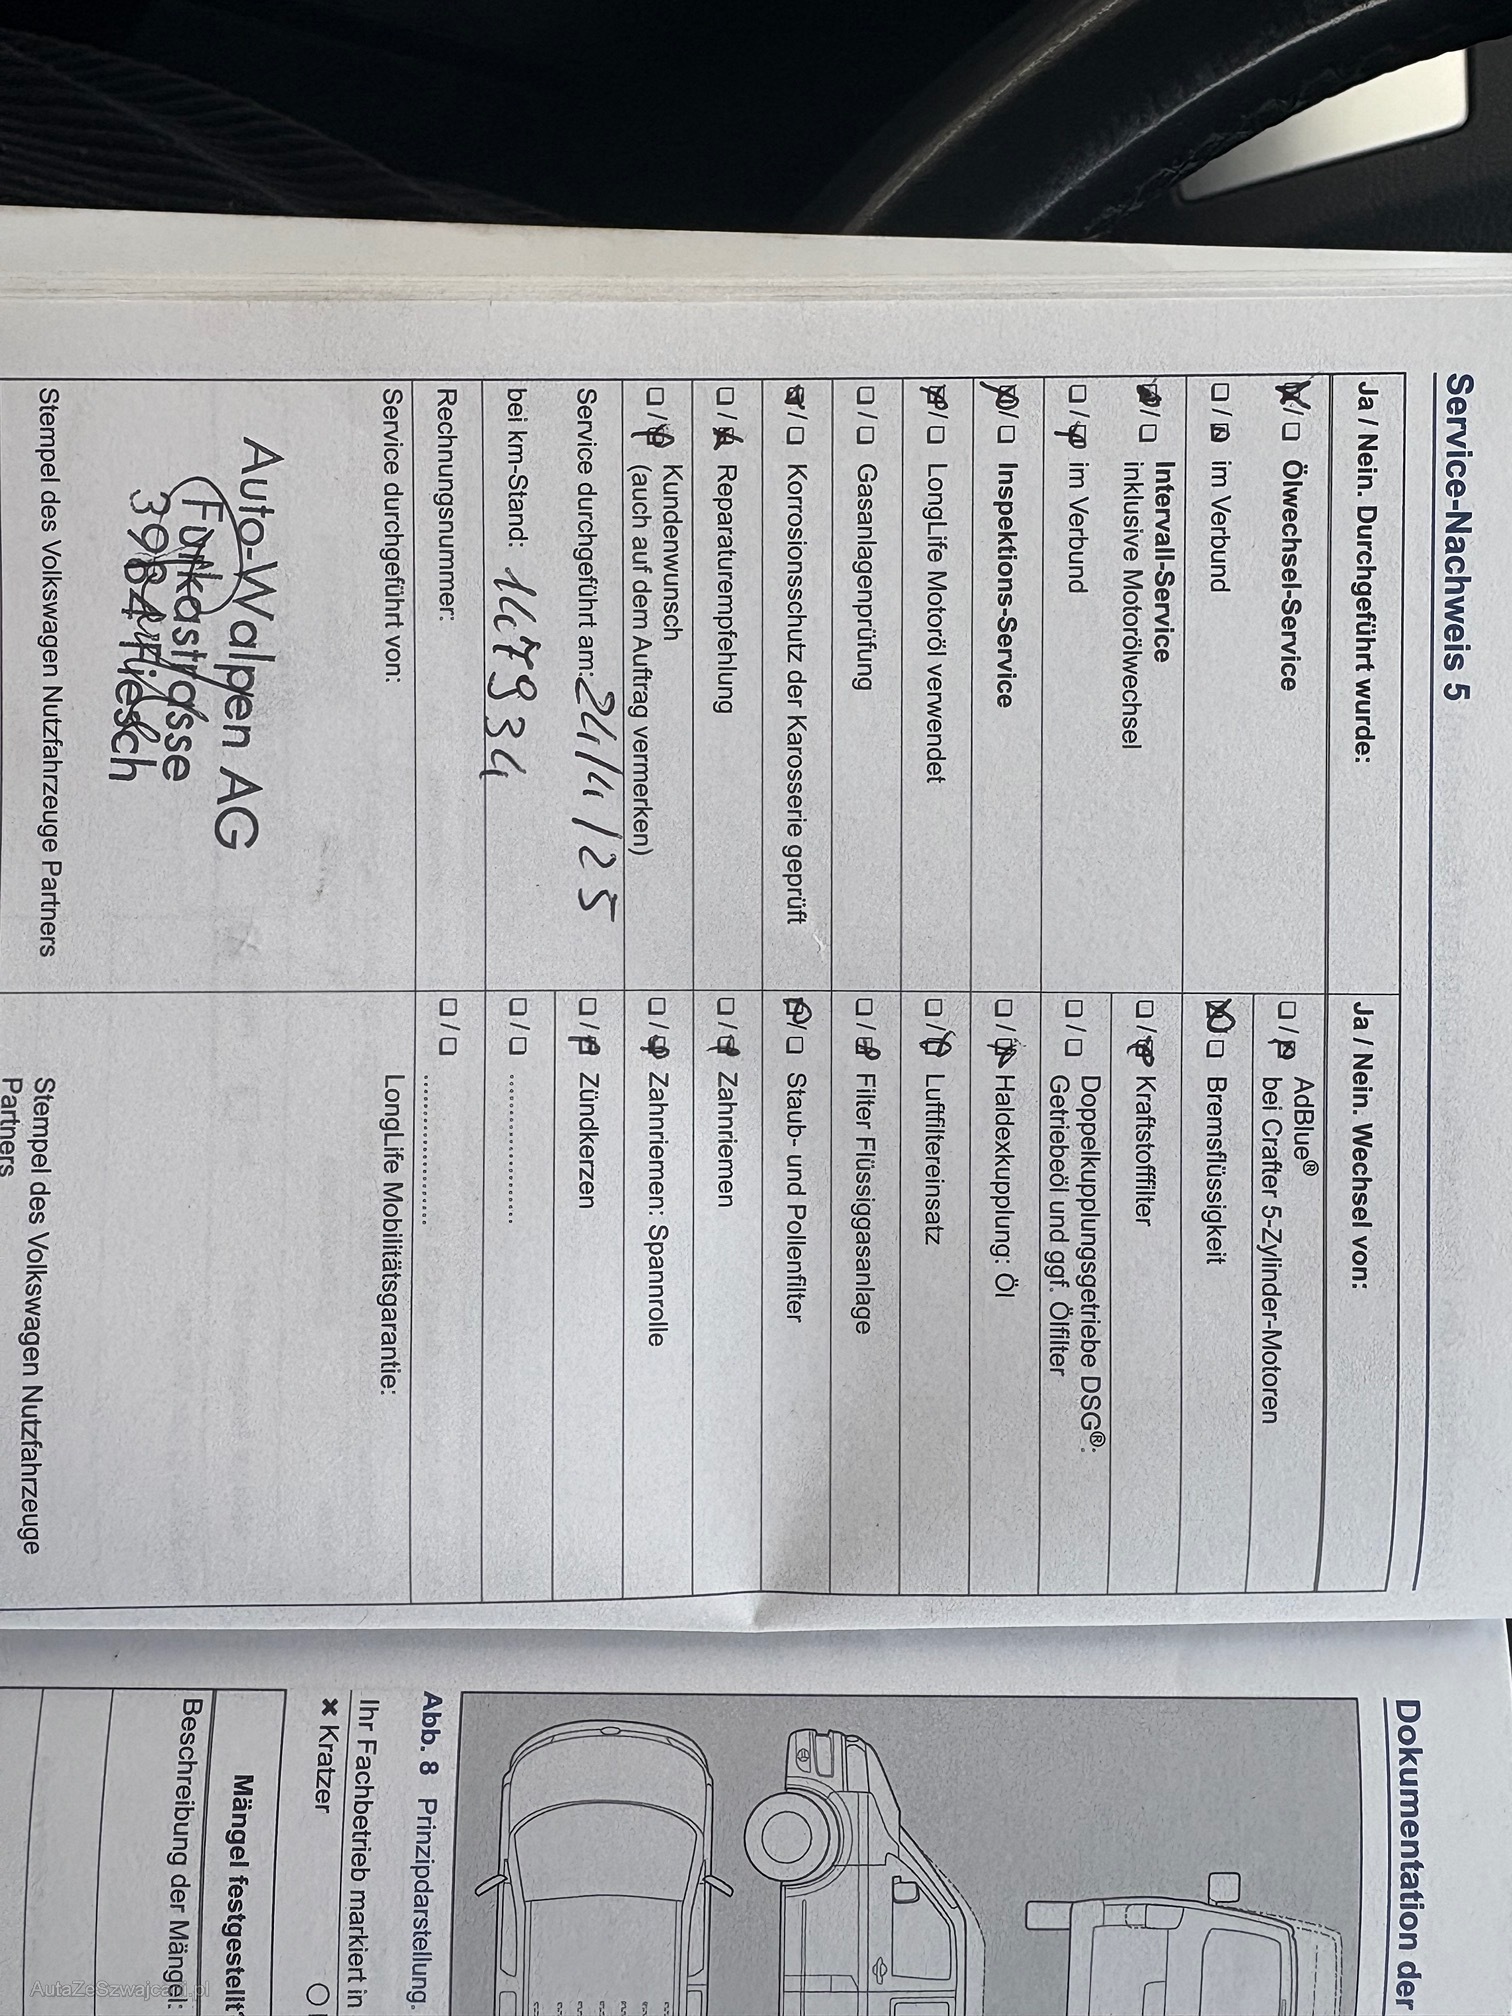 Service-Nachweis 5
Ja / Nein. Durchgeführt wurde:
Ölwechsel-Service
im Verbund
Intervall-Service
inklusive Motorölwechsel
im Verbund
Inspektions-Service
LongLife Motoröl verwendet
Gasanlagenprüfung
Korrosionsschutz der Karosserie geprüft
Reparaturempfehlung
Kundenwunsch
(auch auf dem Auftrag vermerken)
Service durchgeführt am: 24/4/25
bei km-Stand: 147934
Rechnungsnummer:
Service durchgeführt von:
Auto-Walpen AG
Furkastrasse
3984 Fiesch
Stempel des Volkswagen Nutzfahrzeuge Partners
Ja / Nein. Wechsel von:
AdBlue®
bei Crafter 5-Zylinder-Motoren
Bremsflüssigkeit
Kraftstofffilter
Doppelkupplungsgetriebe DSG®:
Getriebeöl und ggf. Ölfilter
Haldexkupplung: Öl
Luftfiltereinsatz
Filter Flüssiggasanlage
Staub- und Pollenfilter
Zahnriemen
Zahnriemen: Spannrolle
Zündkerzen
LongLife Mobilitätsgarantie:
Stempel des Volkswagen Nutzfahrzeuge
Partners
Dokumentation der
Abb. 8 Prinzipdarstellung.
Ihr Fachbetrieb markiert in
× Kratzer
Mängel festgestellt
Beschreibung der Mängel:
AutaZeSzwajcarii.pl